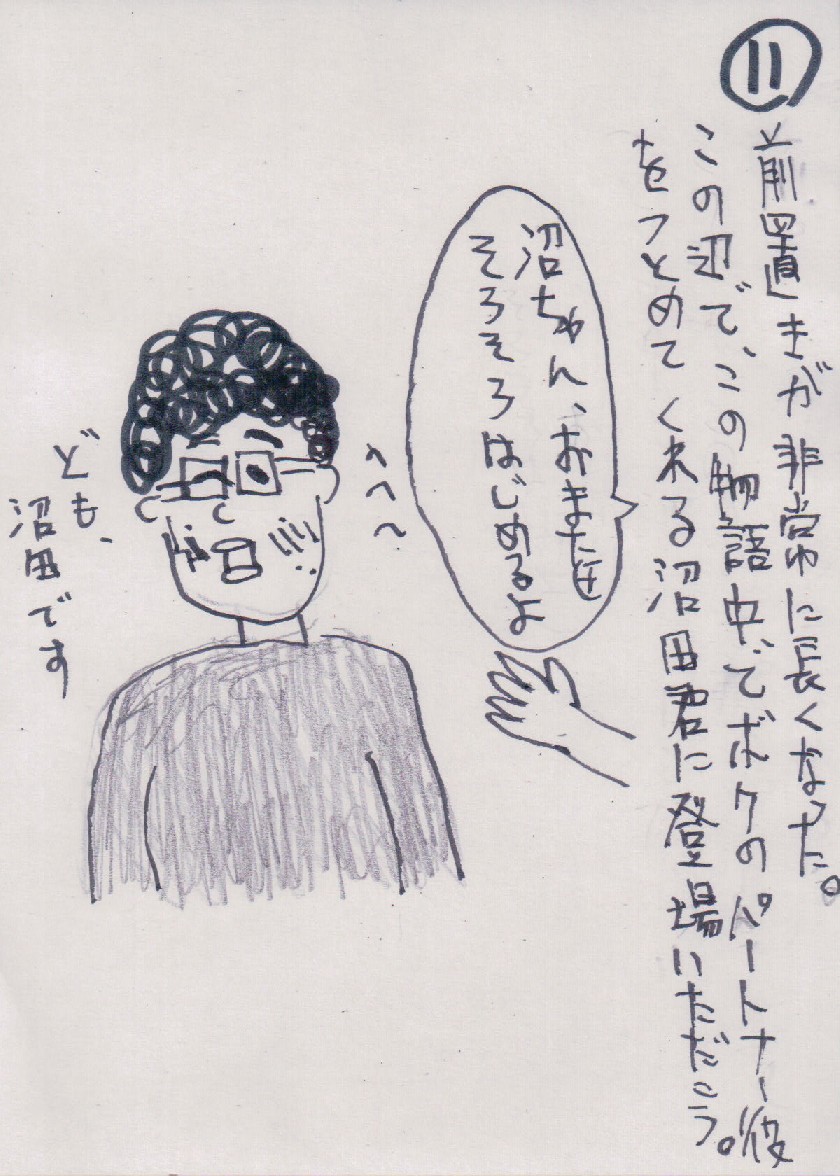 11
前置きが非常に長くなった。
この辺で、この物語中でボクのパートナー役
をつとめてくれる沼田君に登場いただこう。
沼ちゃん、おまたせ
そろそろはじめるよ
へへ〜
ども、
沼田です